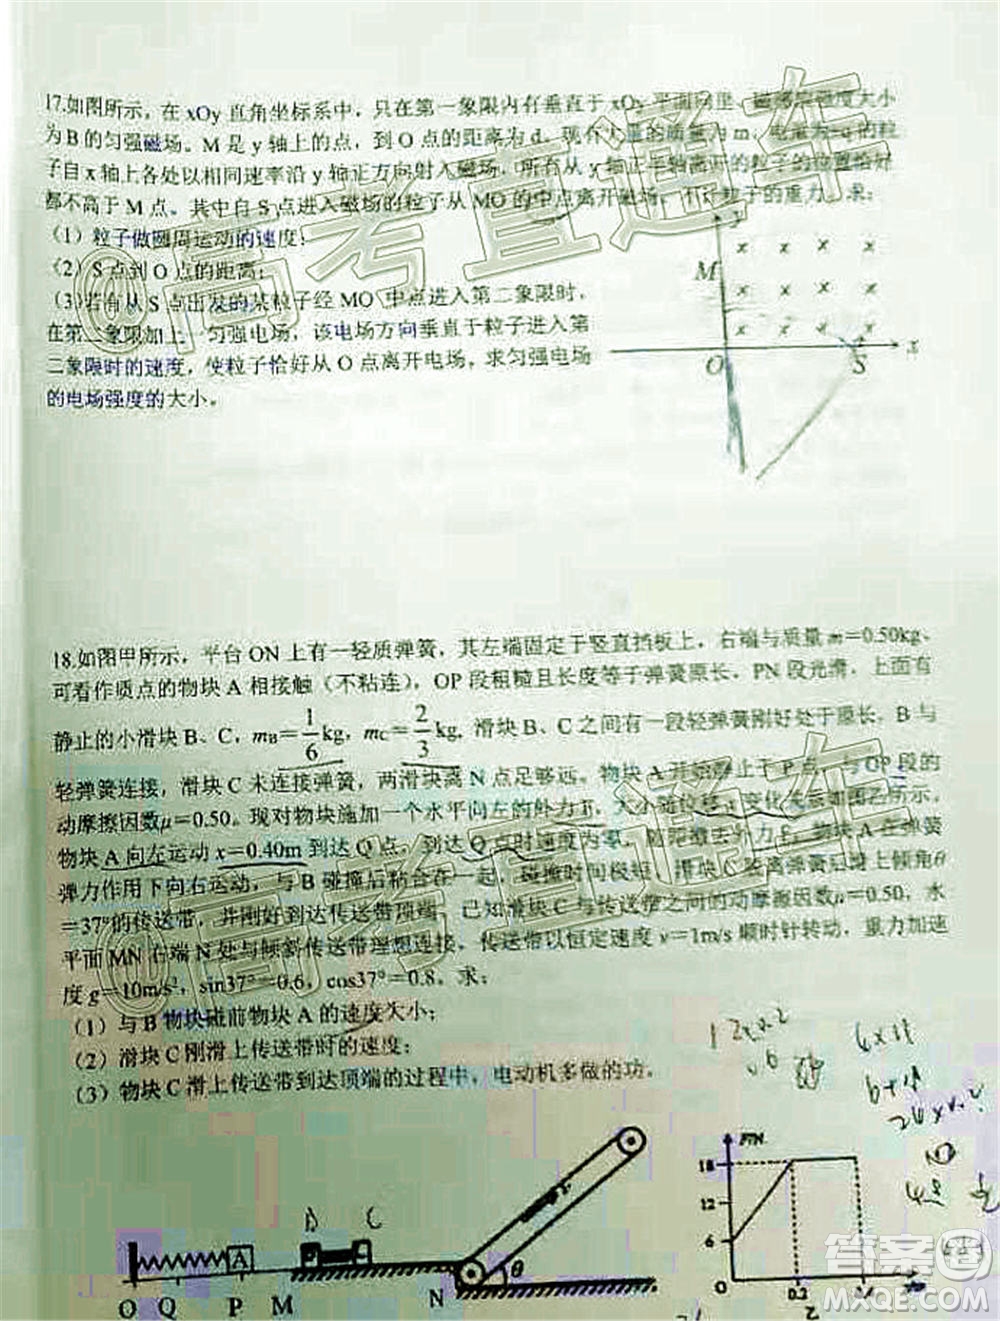 17.如图所示，在 xOy 直角坐标系中，只在第一象限内有垂直于 xOy 平面向里、磁感应强度大小
为 B 的匀强磁场。M 是 y 轴上的一点，到 O 点的距离为 d。现有大量的质量为 m，电量为-q 的粒
子自 x 轴上各处以相同速率沿 y 轴正方向射入磁场，所有从 y 轴正半轴离开的粒子的位置恰好
都不高于 M 点。其中自 S 点进入磁场的粒子从 MO 的中点离开磁场，不计粒子的重力。求：
（1）粒子做圆周运动的速度；
（2）S 点到 O 点的距离；
（3）若有从 S 点出发的某粒子经 MO 中点进入第二象限时，
在第二象限加上一匀强电场，该电场方向垂直于粒子进入第
二象限时的速度，使粒子恰好从 O 点离开电场，求匀强电场
的电场强度的大小。
y
M
O
S
x
18.如图甲所示，平台 ON 上有一轻质弹簧，其左端固定于竖直挡板上，右端与质量 m＝0.50kg、
可看作质点的物块 A 相接触（不粘连），OP 段粗糙且长度等于弹簧原长，PN 段光滑，上面有
静止的小滑块 B、C，mB＝1/6kg，mC＝2/3kg，滑块 B、C 之间有一段轻弹簧刚好处于原长，B 与
轻弹簧连接，滑块 C 未连接弹簧，两滑块离 N 点足够远。物块 A 开始静止于 P 点，与 OP 段的
动摩擦因数μ＝0.50。现对物块施加一个水平向左的外力 F，大小随位移 x 变化关系如图乙所示。
物块 A 向左运动 x＝0.40m 到达 Q 点，到达 Q 点时速度为零，随即撤去外力 F，物块 A 在弹簧
弹力作用下向右运动，与 B 碰撞后粘合在一起，碰撞时间极短，滑块 C 脱离弹簧后滑上倾角θ
＝37°的传送带，并刚好到达传送带顶端。已知滑块 C 与传送带之间的动摩擦因数μ＝0.50，水
平面 MN 右端 N 处与倾斜传送带理想连接，传送带以恒定速度 v＝1m/s 顺时针转动，重力加速
度 g＝10m/s²，sin37°＝0.6，cos37°＝0.8。求：
（1）与 B 物块碰前物块 A 的速度大小；
（2）滑块 C 刚滑上传送带时的速度；
（3）物块 C 滑上传送带到达顶端的过程中，电动机多做的功。
A
θ
O Q P M N
F/N
18
12
6
0.2
@高考直通车
@高考直通车
答案圈
MXQE.COM